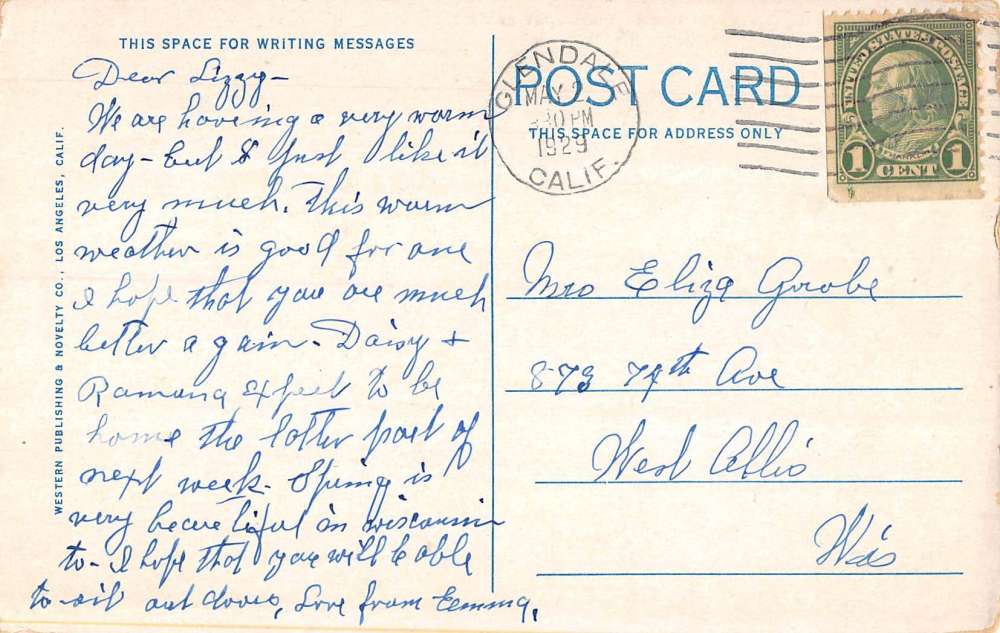 THIS SPACE FOR WRITING MESSAGES
Dear Lizzy-
We are having a very warm
day - but I just like it
very much. This warm
weather is good for one
I hope that you are much
better again - Daisy +
Ramona expect to be
home the latter part of
next week. Spring is
very beautiful in wisconsin
to - I hope that you will be able
to sit out doors, Love from Emma,
WESTERN PUBLISHING & NOVELTY CO., LOS ANGELES, CALIF.
POST CARD
THIS SPACE FOR ADDRESS ONLY
GLENDALE
MAY 2
30 PM
1929
CALIF.
UNITED STATES POSTAGE
FRANKLIN
1 CENT 1
Mrs Eliza Grobe
873 74th Ave
West Allis
Wis